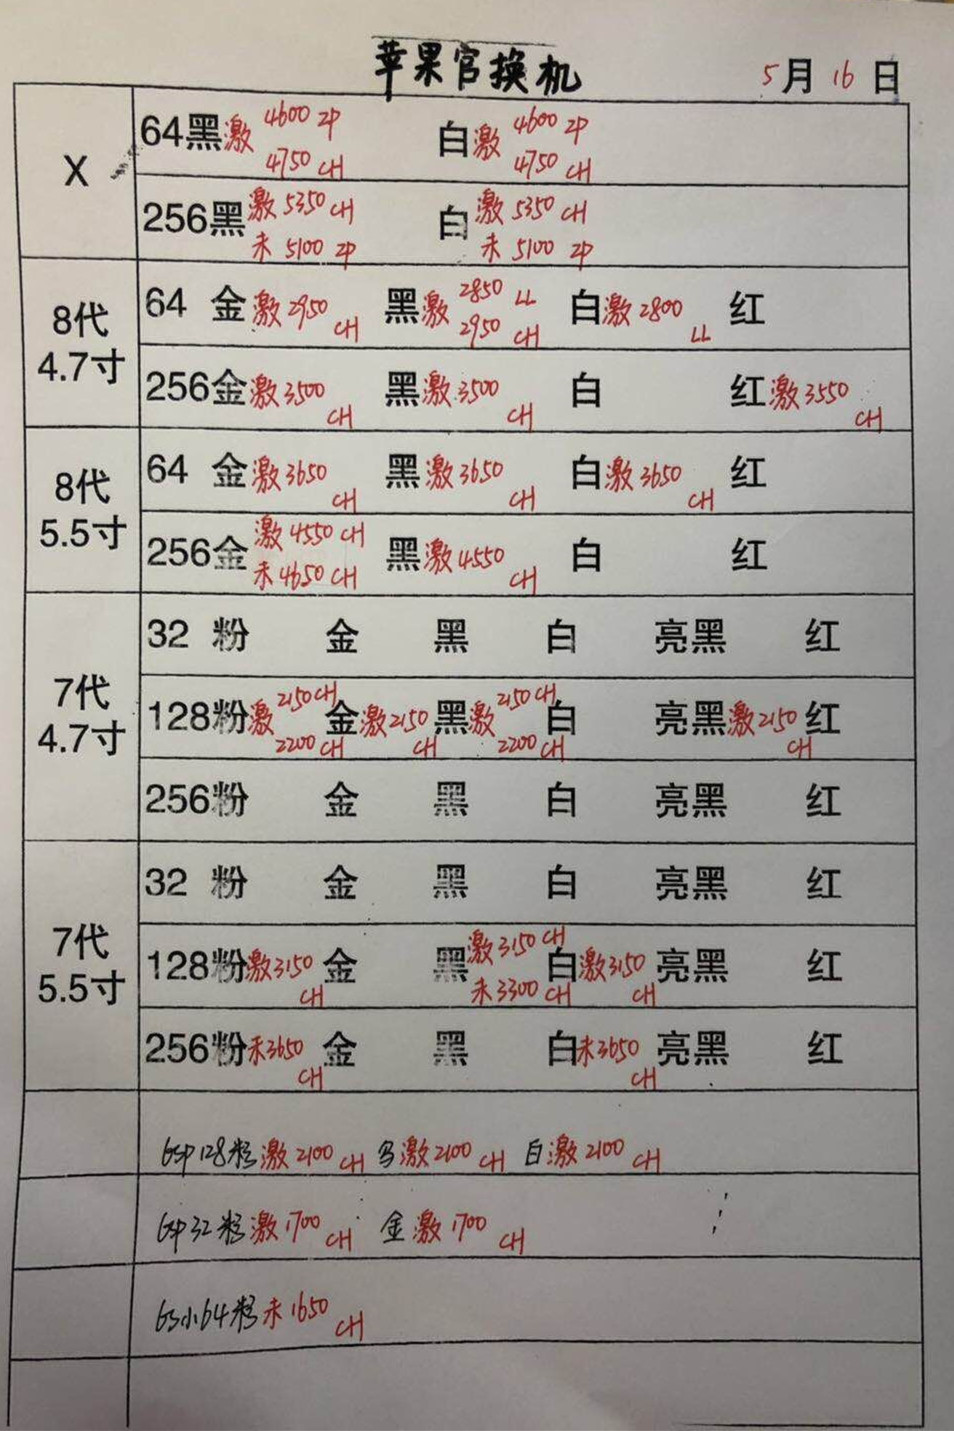 苹果官换机
5月16日
X
64黑激 4600 ZP 4750 CH 白激 4600 ZP 4750 CH
256黑 激 5350 CH 未 5100 ZP 白 激 5350 CH 未 5100 ZP
8代 4.7寸
64 金激2950 CH 黑激 2850 LL 2950 CH 白激2800 LL 红
256金激3500 CH 黑激3500 CH 白 红激3550 CH
8代 5.5寸
64 金激3650 CH 黑激3650 CH 白激3650 CH 红
256金 激4550 CH 未4650 CH 黑激4550 CH 白 红
7代 4.7寸
32 粉 金 黑 白 亮黑 红
128粉激 2150 CH 2200 CH 金激2150 CH 黑激 2150 CH 2200 CH 白 亮黑激2150 CH 红
256粉 金 黑 白 亮黑 红
7代 5.5寸
32 粉 金 黑 白 亮黑 红
128粉激3150 CH 金 黑 激3150 CH 未3300 CH 白激3150 CH 亮黑 红
256粉未3650 CH 金 黑 白未3650 CH 亮黑 红
6sp 128粉激2100 CH 激2100 CH 白激2100 CH
6sp 32粉激1700 CH 金激1700 CH
6s小64粉未1650 CH